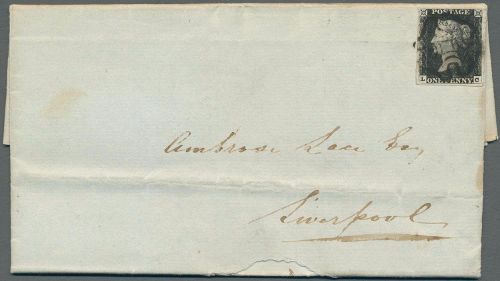 POSTAGE
L C
ONE PENNY
Ambrose Lace Esq
Liverpool